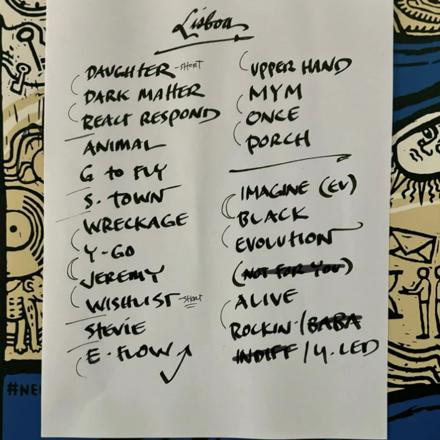 Lisboa
DAUGHTER -SHORT
DARK MATTER
REACT RESPOND
ANIMAL
G to FLY
S. TOWN
WRECKAGE
Y-GO
JEREMY
WISHLIST -SHORT
STEVIE
E. FLOW
UPPER HAND
MYM
ONCE
PORCH
IMAGINE (EV)
BLACK
EVOLUTION
(NOT FOR YOU)
ALIVE
ROCKIN /BABA
INDIFF /Y. LED
#NE